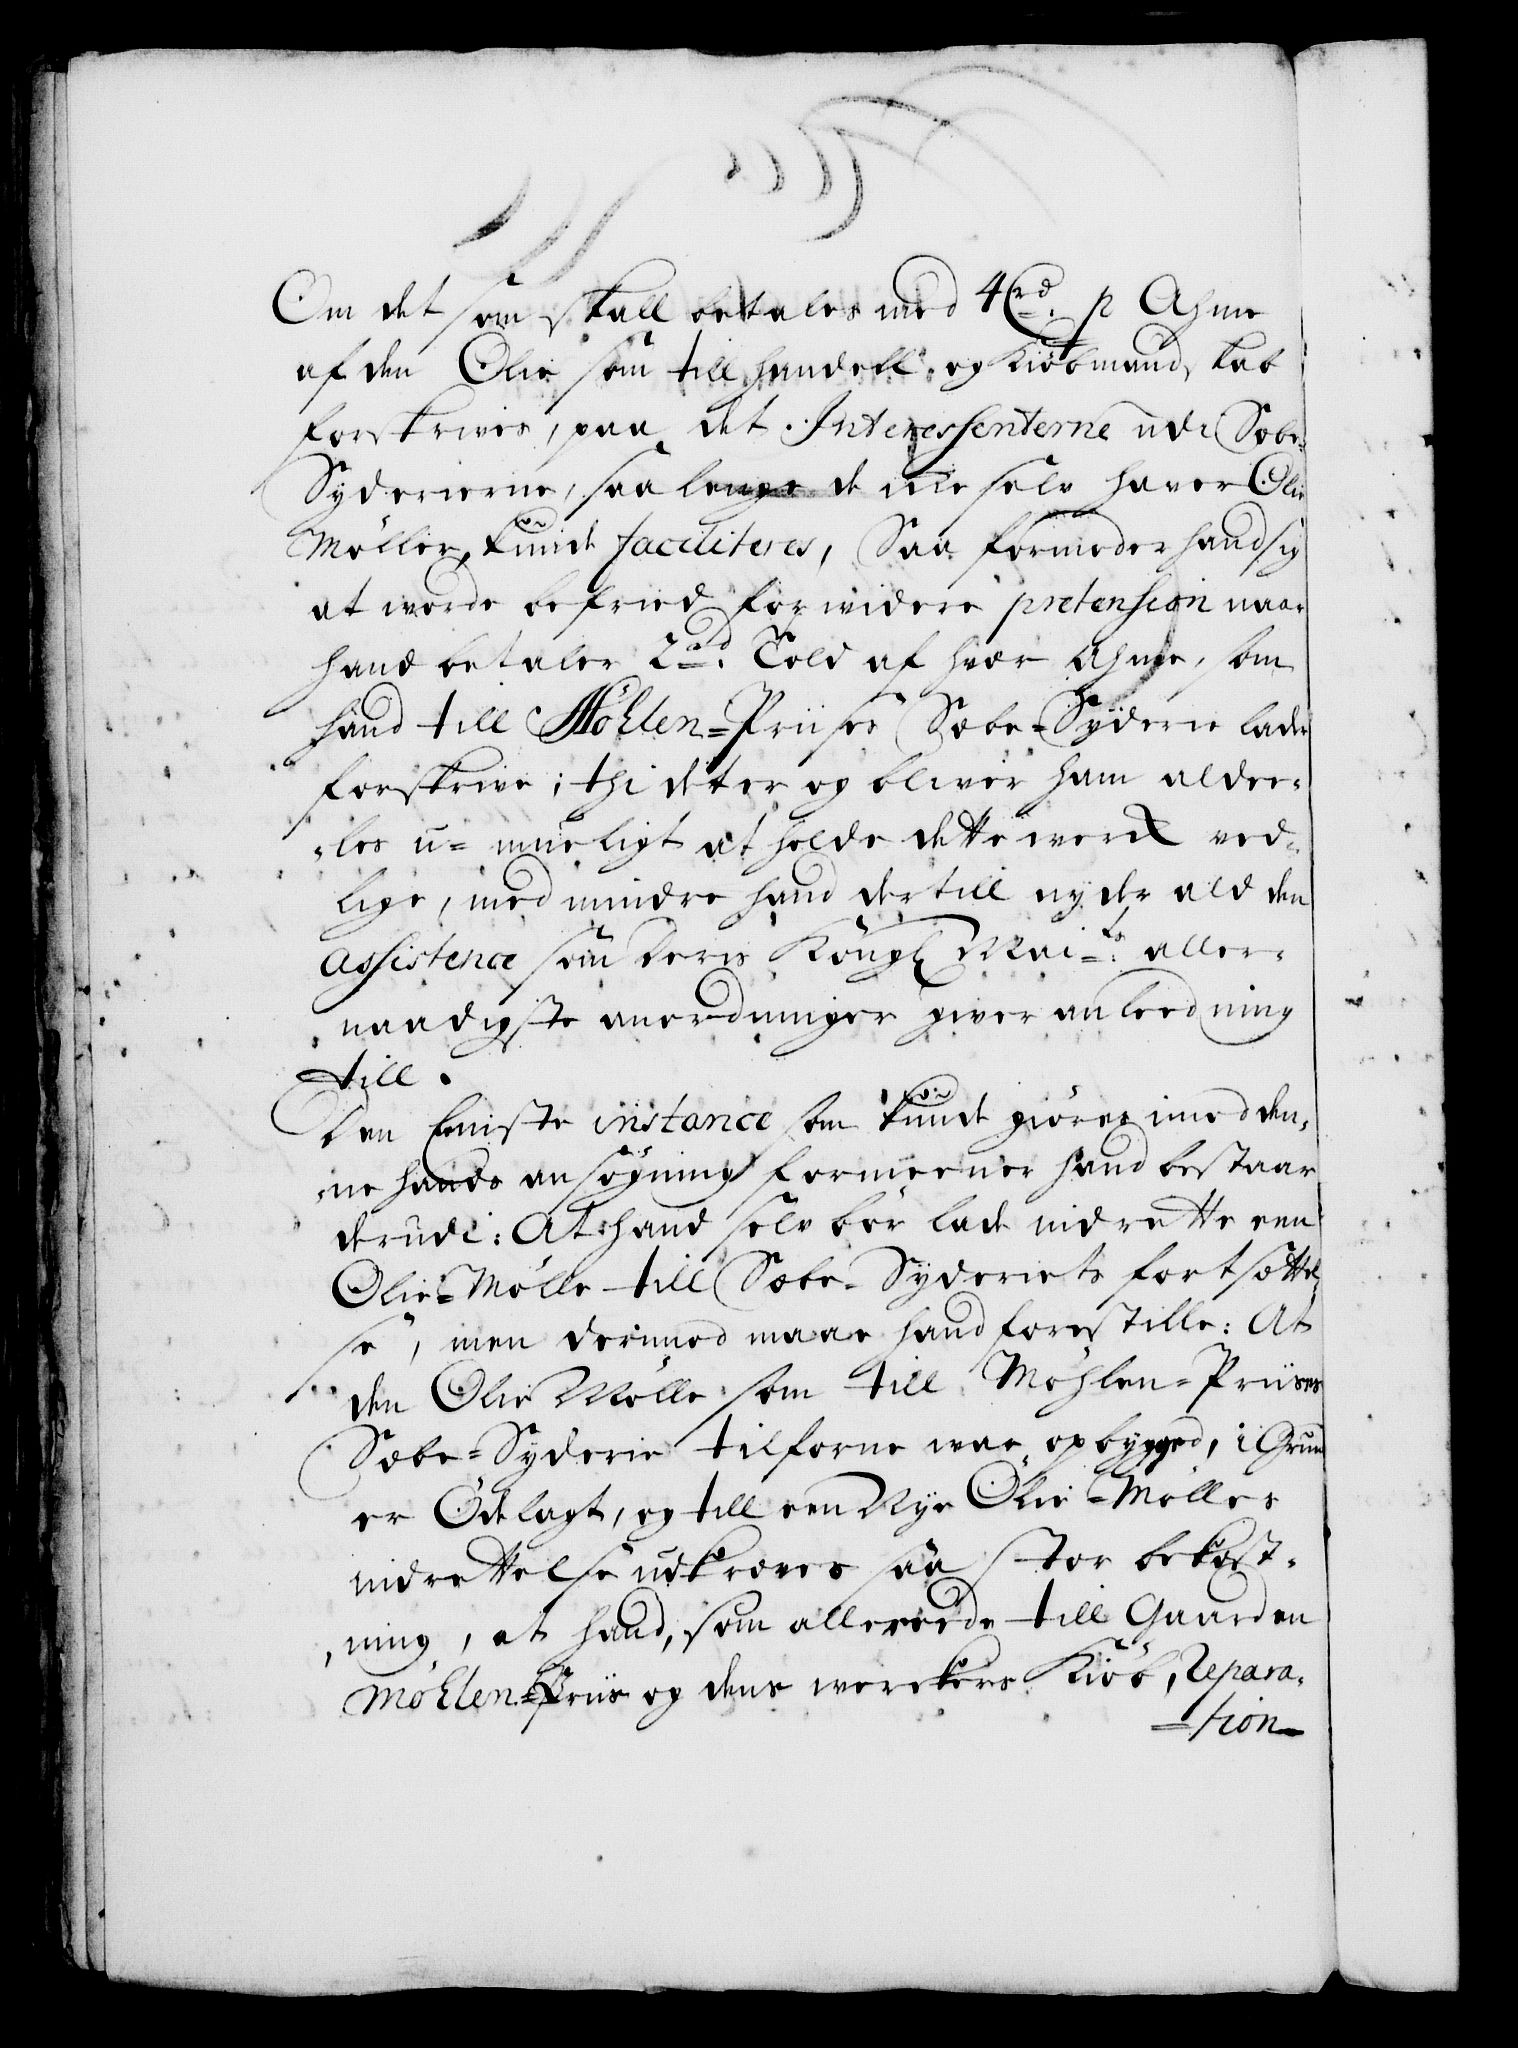 Om det som skall betales med 4 rd. p Ahme
af den Olie som till handell og Kiöbmandskab
forskrives, paa det Interessenterne udi Sæbe-
Syderierne, saa lenge de icke selv haver Olie
Møller, kunde faciliteres, Saa formoder hand sig
at worde befried for widere pretension naar
hand betaler 2 rd. Told af hver Ahme, som
hand till Möhlen-Priises Sæbe-Syderie lader
forskrive; thi det er og bliver ham alder-
les u-mueligt at holde dette werck ved-
lige, med mindre hand dertill nyder ald den
assistence som Deris Kongl Mai.ts aller-
naadigste anordninger giver anleedning
till.
Den Eniste instance som kunde giøres imod den-
ne hands ansøgning formeener hand bestaar
derudi: At hand selv bør lade indrette een
Olie-Mølle till Sæbe-Syderiets fortsættel
se, men derimod maae hand forestille: At
den Olie Mølle som till Möhlen-Priises
Sæbe-Syderie tilforne war opbygged, i Grun
er Ödelagt, og till een Nye Olie-Mølles
indrettelse udkræves saa stor bekost-
ning, at hand, som allereede till Gaarden
Möhlen-Priis og dens werckers Kiöb, Repara-
tion